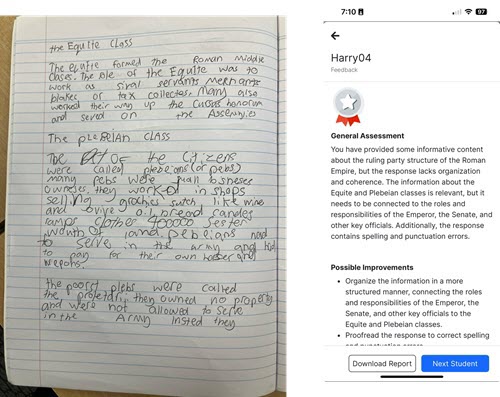 the Equite Class
The Equite formed the Roman Middle
Clases. The ole of the Equite was to
work as sival servants Merchants
or tax collectes. Many also
worked their way up the Cursus honorum
and served on the Assemblies
The plebeian CLASS
The of the Citizens
were called plebeians (or plebs)
many plebs were buisnesses
they worked in shops
selling like wine
and bread candes
lamps clother 40000 sester
worth of land plebeians had
to serve in the army and had
to pay for their own and
the poorst plebs were called
the they owned no property
and were not allowed to serve
in the Army insted they
7:10
97
Harry04
Feedback
General Assessment
You have provided some informative content
about the ruling party structure of the Roman
Empire, but the response lacks organization
and coherence. The information about the
Equite and Plebeian classes is relevant, but it
needs to be connected to the roles and
responsibilities of the Emperor, the Senate, and
other key officials. Additionally, the response
contains spelling and punctuation errors.
Possible Improvements
• Organize the information in a more
structured manner, connecting the roles
and responsibilities of the Emperor, the
Senate, and other key officials to the
Equite and Plebeian classes.
• Proofread the response to correct spelling
and punctuation errors.
Download Report
Next Student